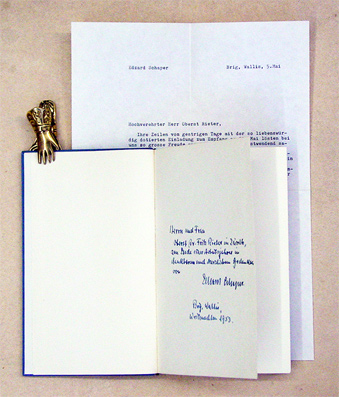 Edzard Schaper
Brig, Wallis, 5.Mai
Hochverehrter Herr Oberst Rieter,
Ihre Zeilen vom gestrigen Tage mit der so liebenswür-
dig dotierten Einladung zum Empfang Mai lösten bei
uns so grosse Freude
Herrn und Frau
Oberst Dr. Fritz Rieter in Zürich,
zum Ende eines Arbeitsjahres in
dankbarem und herzlichem Gedenken
von
Edzard Schaper
Brig, Wallis,
Weihnachten 1953.